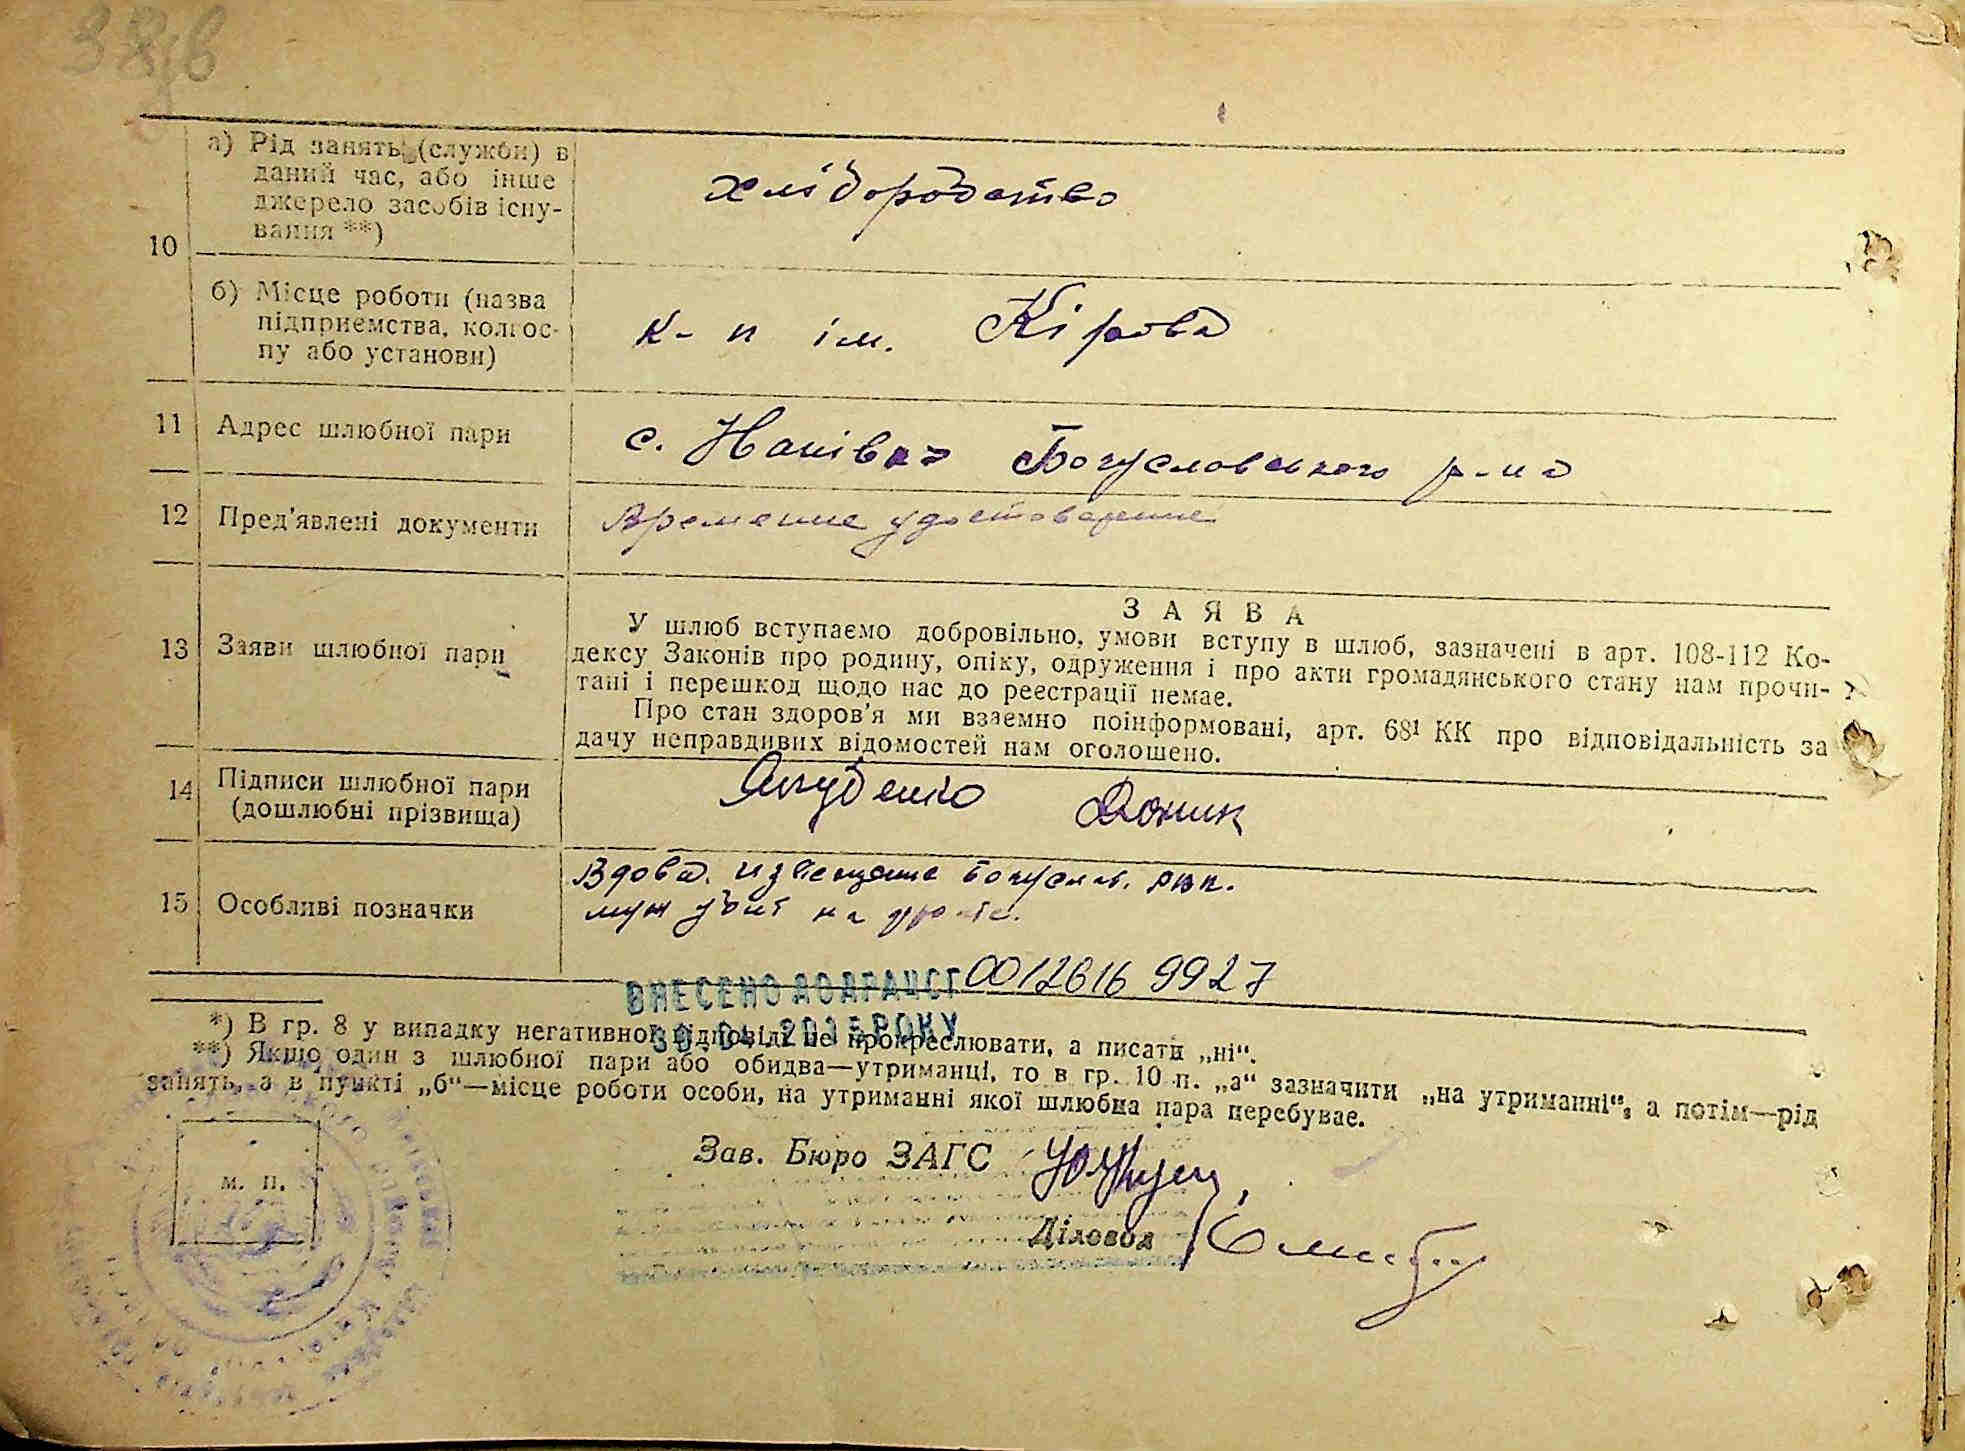 38 зв
а) Рід занять (служби) в
даний час, або інше
джерело засобів існу-
вання **)
хліборобство
10
б) Місце роботи (назва
підприємства, колгос-
пу або установи)
к-п ім. Кірова
11 Адрес шлюбної пари
с. Ісайки Богуславського р-на
12 Пред'явлені документи
Временне удостоверение
13 Заяви шлюбної пари
ЗАЯВА
У шлюб вступаємо добровільно, умови вступу в шлюб, зазначені в арт. 108-112 Ко-
дексу Законів про родину, опіку, одруження і про акти громадянського стану нам прочи-
тані і перешкод щодо нас до реєстрації немає.
Про стан здоров'я ми взаємно поінформовані, арт. 68¹ КК про відповідальність за
дачу неправдивих відомостей нам оголошено.
14 Підписи шлюбної пари
(дошлюбні прізвища)
Якубенко
15 Особливі позначки
Вдова. извещение Богуслав. РВК.
муж убит на фронте.
ВНЕСЕНО ДО ДРАЦСГ 0012616 9927
30.04.2015 РОКУ
*) В гр. 8 у випадку негативної відповіді не прокреслювати, а писати „ні“.
**) Якщо один з шлюбної пари або обидва—утриманці, то в гр. 10 п. „а“ зазначити „на утриманні“, а потім—рід
занять, а в пункті „б“—місце роботи особи, на утриманні якої шлюбна пара перебуває.
м. п.
Зав. Бюро ЗАГС
Діловод